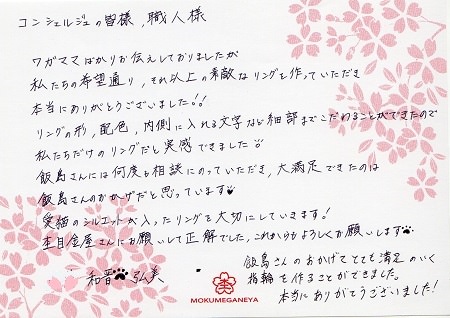 コンシェルジュの皆様,職人様
ワガママばかりお伝えしておりましたが
私たちの希望通り,それ以上の素敵なリングを作っていただき
本当にありがとうございました!!
リングの形,配色,内側に入れる文字など細部までこだわることができたので
私たちだけのリングだと実感できました
飯島さんには何度も相談にのっていただき,大満足できたのは
飯島さんのおかげだと思っています
愛猫のシルエットが入ったリングを大切にしていきます!
杢目金屋さんにお願いして正解でした,これからもよろしくお願いします
和晋 弘美
飯島さんのおかげでとても満足のいく
指輪を作ることができました。
本当にありがとうございました!
MOKUMEGANEYA